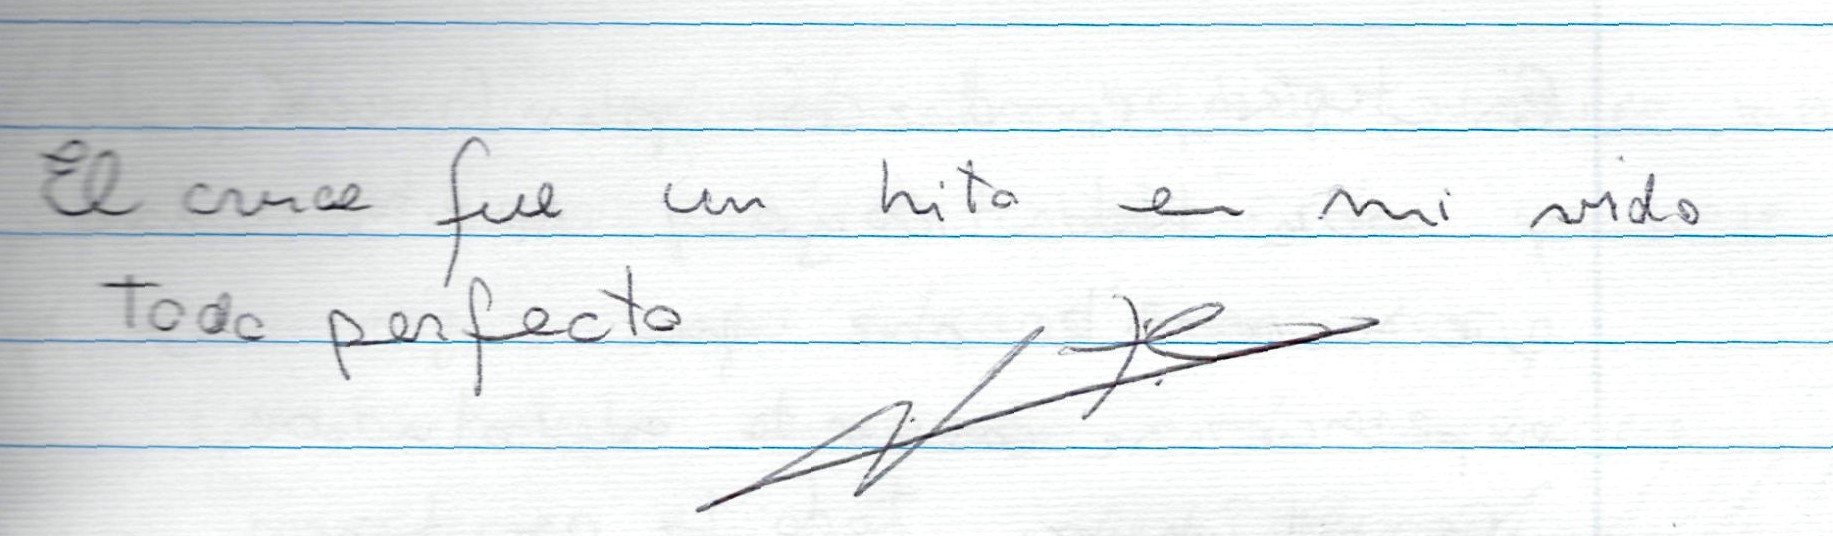 El cruce fue un hito en mi vida
Todo perfecto